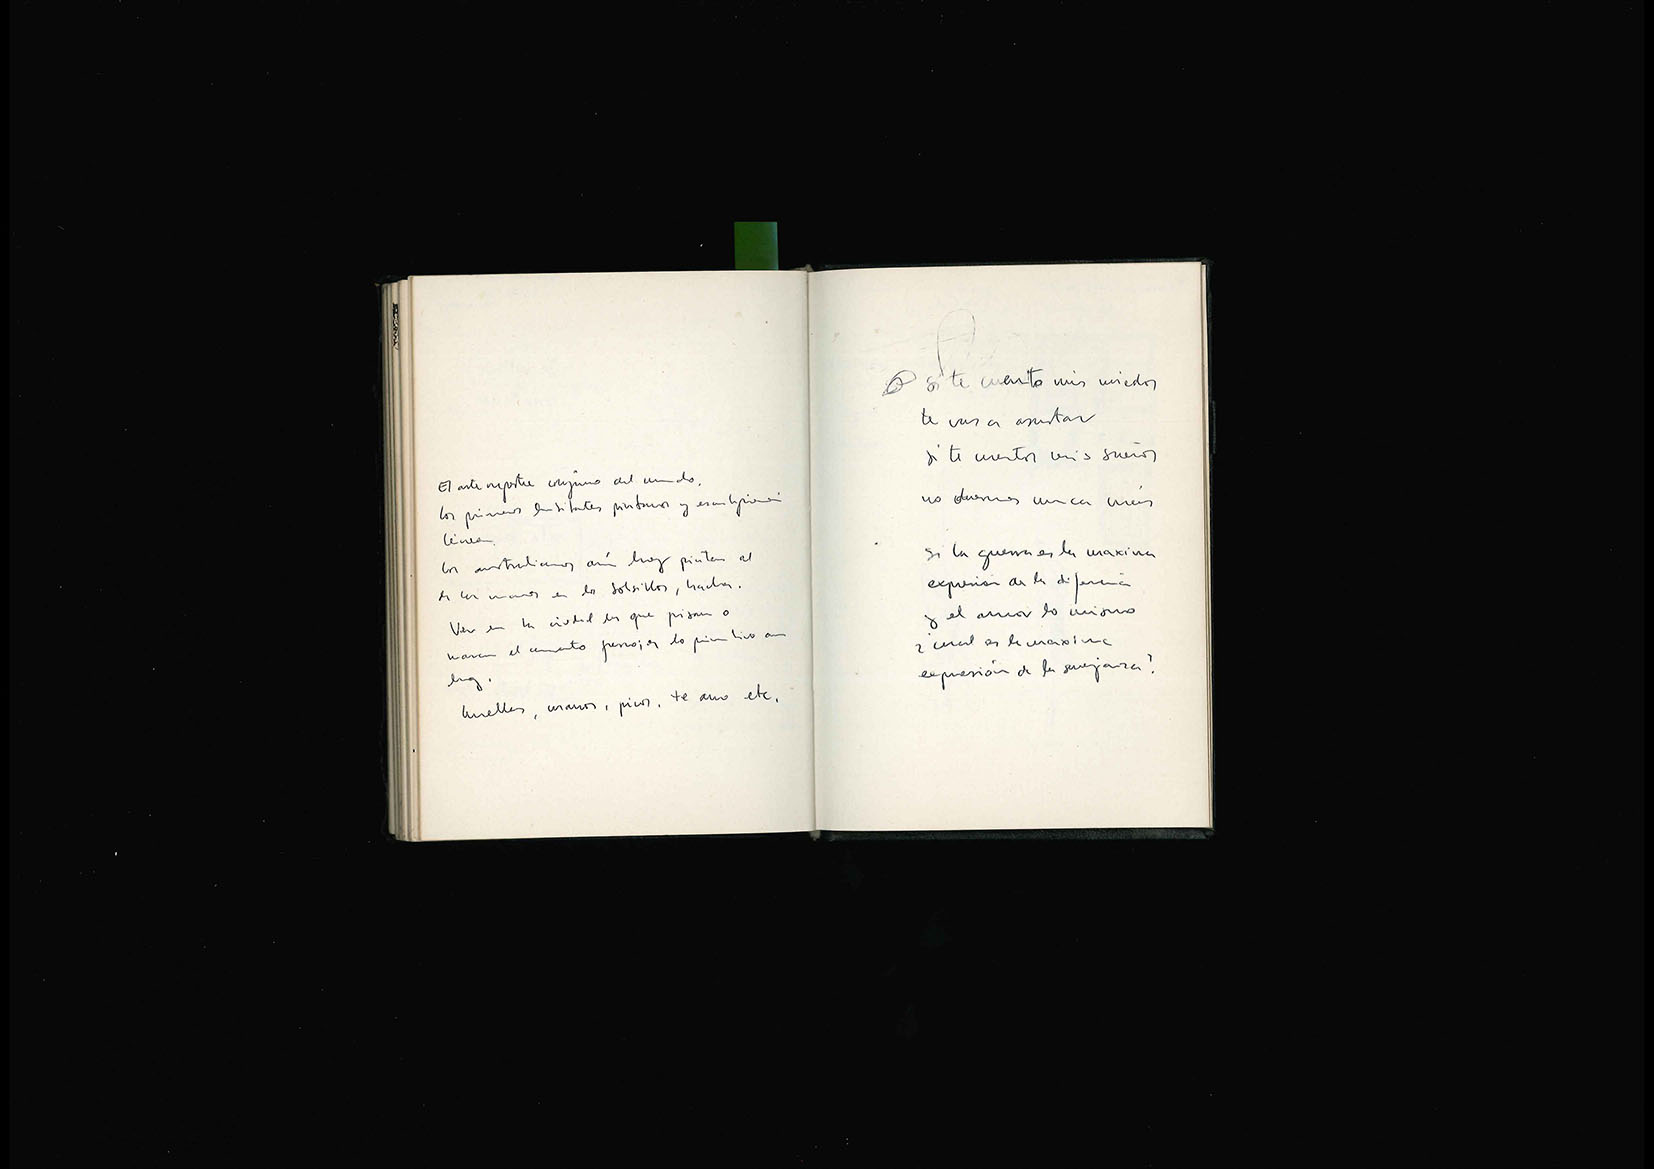 El arte rupestre del mundo.
los primeros habitantes pintaron y
línea.
los australianos aún hoy pintan al
de las manos en los bolsillos, hachas.
Ver en la ciudad los que pisan o
marcan el cemento fresco, es lo primitivo aun
hoy.
huellas, manos, picos, te amo etc.
si te cuento mis miedos
te vas a asustar
si te cuento mis sueños
no duermes nunca más
si la guerra es la maxima
expresión de la diferencia
y el amor lo mismo
¿cual es la maxima
expresión de la semejanza?